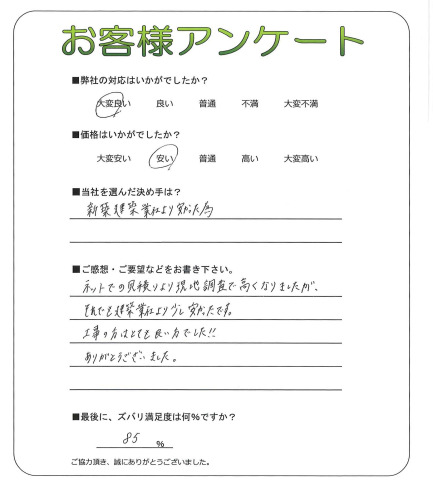 お客様アンケート
■弊社の対応はいかがでしたか？
大変良い 良い 普通 不満 大変不満
■価格はいかがでしたか？
大変安い 安い 普通 高い 大変高い
■当社を選んだ決め手は？
新築建築業社より安かった為
■ご感想・ご要望などをお書き下さい。
ネットでの見積りより現地調査で高くなりましたが、
それでも建築業社より少し安かったです。
工事の方はとても良い方でした!!
ありがとうございました。
■最後に、ズバリ満足度は何％ですか？
85 %
ご協力頂き、誠にありがとうございました。